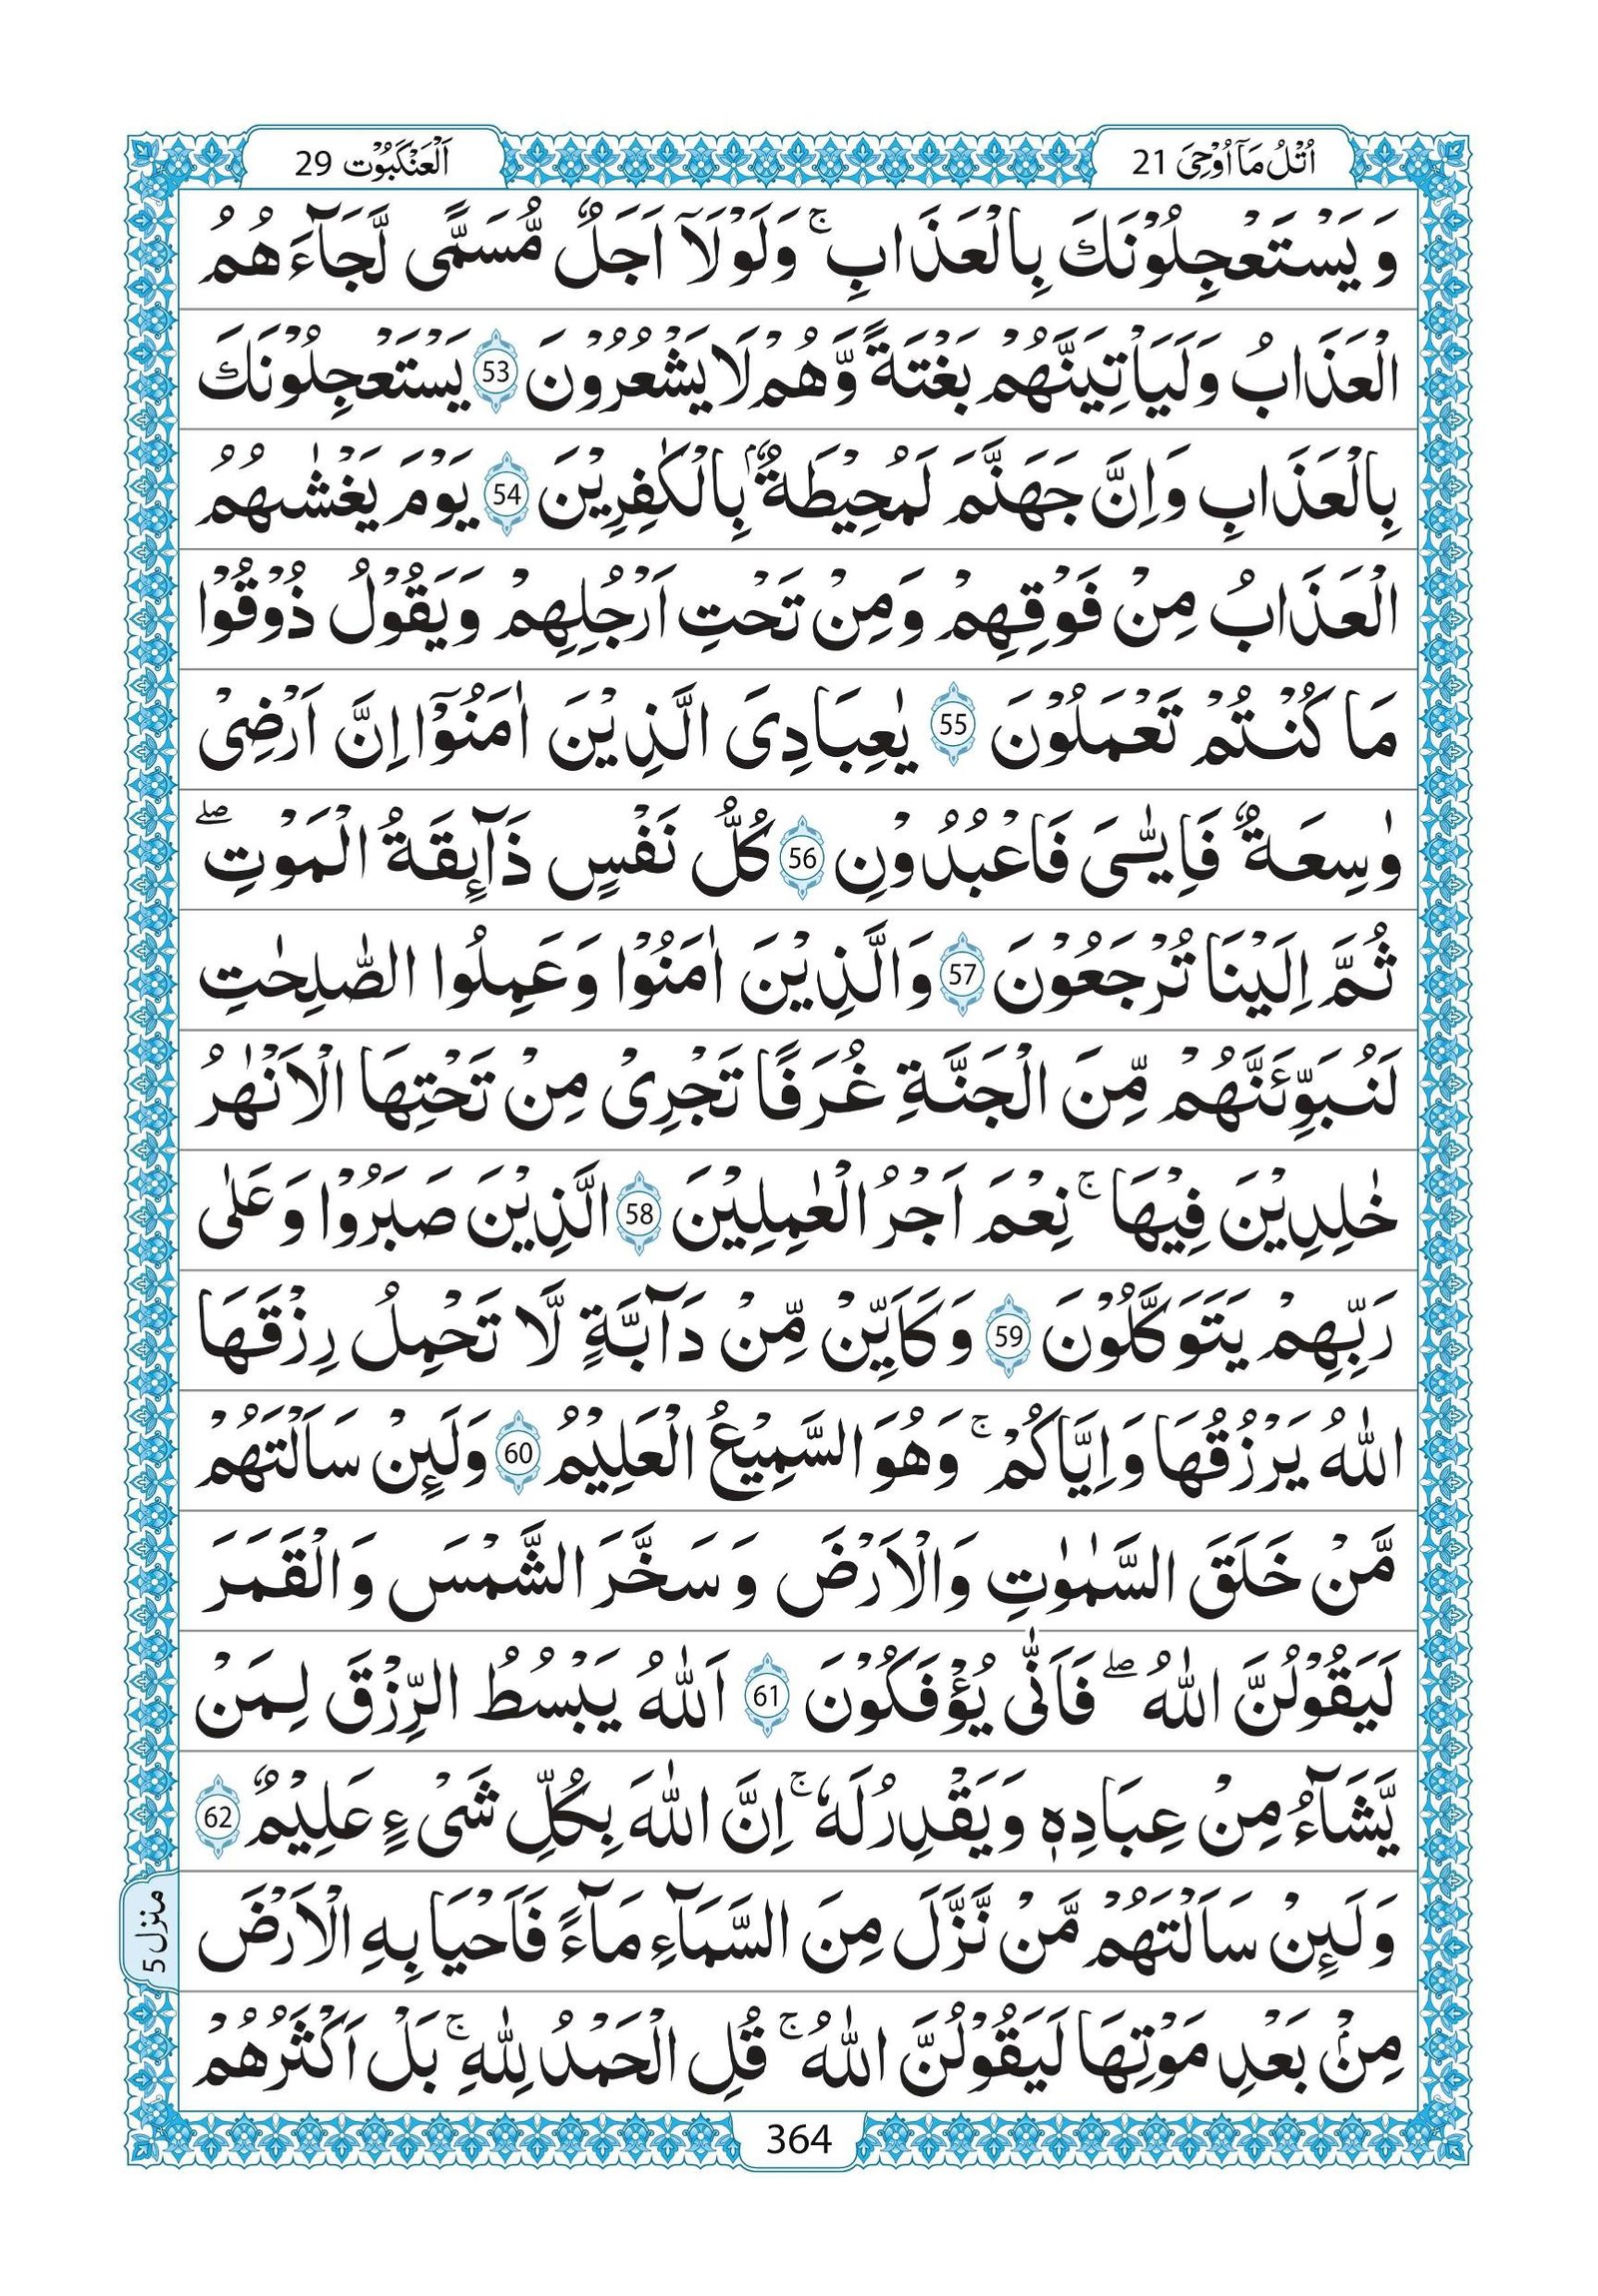 اُتْلُ مَآ اُوْحِیَ 21
اَلْعَنْكَبُوْت 29
وَ یَسْتَعْجِلُوْنَكَ بِالْعَذَابِ ۚ وَلَوْلَاۤ اَجَلٌ مُّسَمًّی لَّجَآءَهُمُ
الْعَذَابُ وَلَیَاْتِیَنَّهُمْ بَغْتَةً وَّهُمْ لَا یَشْعُرُوْنَ 53 یَسْتَعْجِلُوْنَكَ
بِالْعَذَابِ وَاِنَّ جَهَنَّمَ لَمُحِیْطَةٌۢ بِالْكٰفِرِیْنَ 54 یَوْمَ یَغْشٰىهُمُ
الْعَذَابُ مِنْ فَوْقِهِمْ وَمِنْ تَحْتِ اَرْجُلِهِمْ وَیَقُوْلُ ذُوْقُوْا
مَا كُنْتُمْ تَعْمَلُوْنَ 55 یٰعِبَادِیَ الَّذِیْنَ اٰمَنُوْۤا اِنَّ اَرْضِیْ
وٰسِعَةٌ فَاِیَّٰیَ فَاعْبُدُوْنِ 56 كُلُّ نَفْسٍ ذَآىِٕقَةُ الْمَوْتِ ۖ
ثُمَّ اِلَیْنَا تُرْجَعُوْنَ 57 وَالَّذِیْنَ اٰمَنُوْا وَعَمِلُوا الصّٰلِحٰتِ
لَنُبَوِّئَنَّهُمْ مِّنَ الْجَنَّةِ غُرَفًا تَجْرِیْ مِنْ تَحْتِهَا الْاَنْهٰرُ
خٰلِدِیْنَ فِیْهَا ۚ نِعْمَ اَجْرُ الْعٰمِلِیْنَ 58 الَّذِیْنَ صَبَرُوْا وَعَلٰی
رَبِّهِمْ یَتَوَكَّلُوْنَ 59 وَكَاَیِّنْ مِّنْ دَآبَّةٍ لَّا تَحْمِلُ رِزْقَهَا
اللّٰهُ یَرْزُقُهَا وَاِیَّاكُمْ ۚ وَهُوَ السَّمِیْعُ الْعَلِیْمُ 60 وَلَىِٕنْ سَاَلْتَهُمْ
مَّنْ خَلَقَ السَّمٰوٰتِ وَالْاَرْضَ وَسَخَّرَ الشَّمْسَ وَالْقَمَرَ
لَیَقُوْلُنَّ اللّٰهُ ۖ فَاَنّٰی یُؤْفَكُوْنَ 61 اَللّٰهُ یَبْسُطُ الرِّزْقَ لِمَنْ
یَّشَآءُ مِنْ عِبَادِهٖ وَیَقْدِرُ لَهٗ ۚ اِنَّ اللّٰهَ بِكُلِّ شَیْءٍ عَلِیْمٌ 62
وَلَىِٕنْ سَاَلْتَهُمْ مَّنْ نَّزَّلَ مِنَ السَّمَآءِ مَآءً فَاَحْیَا بِهِ الْاَرْضَ
مِنْۢ بَعْدِ مَوْتِهَا لَیَقُوْلُنَّ اللّٰهُ ۚ قُلِ الْحَمْدُ لِلّٰهِ ۚ بَلْ اَكْثَرُهُمْ
منزل 5
364